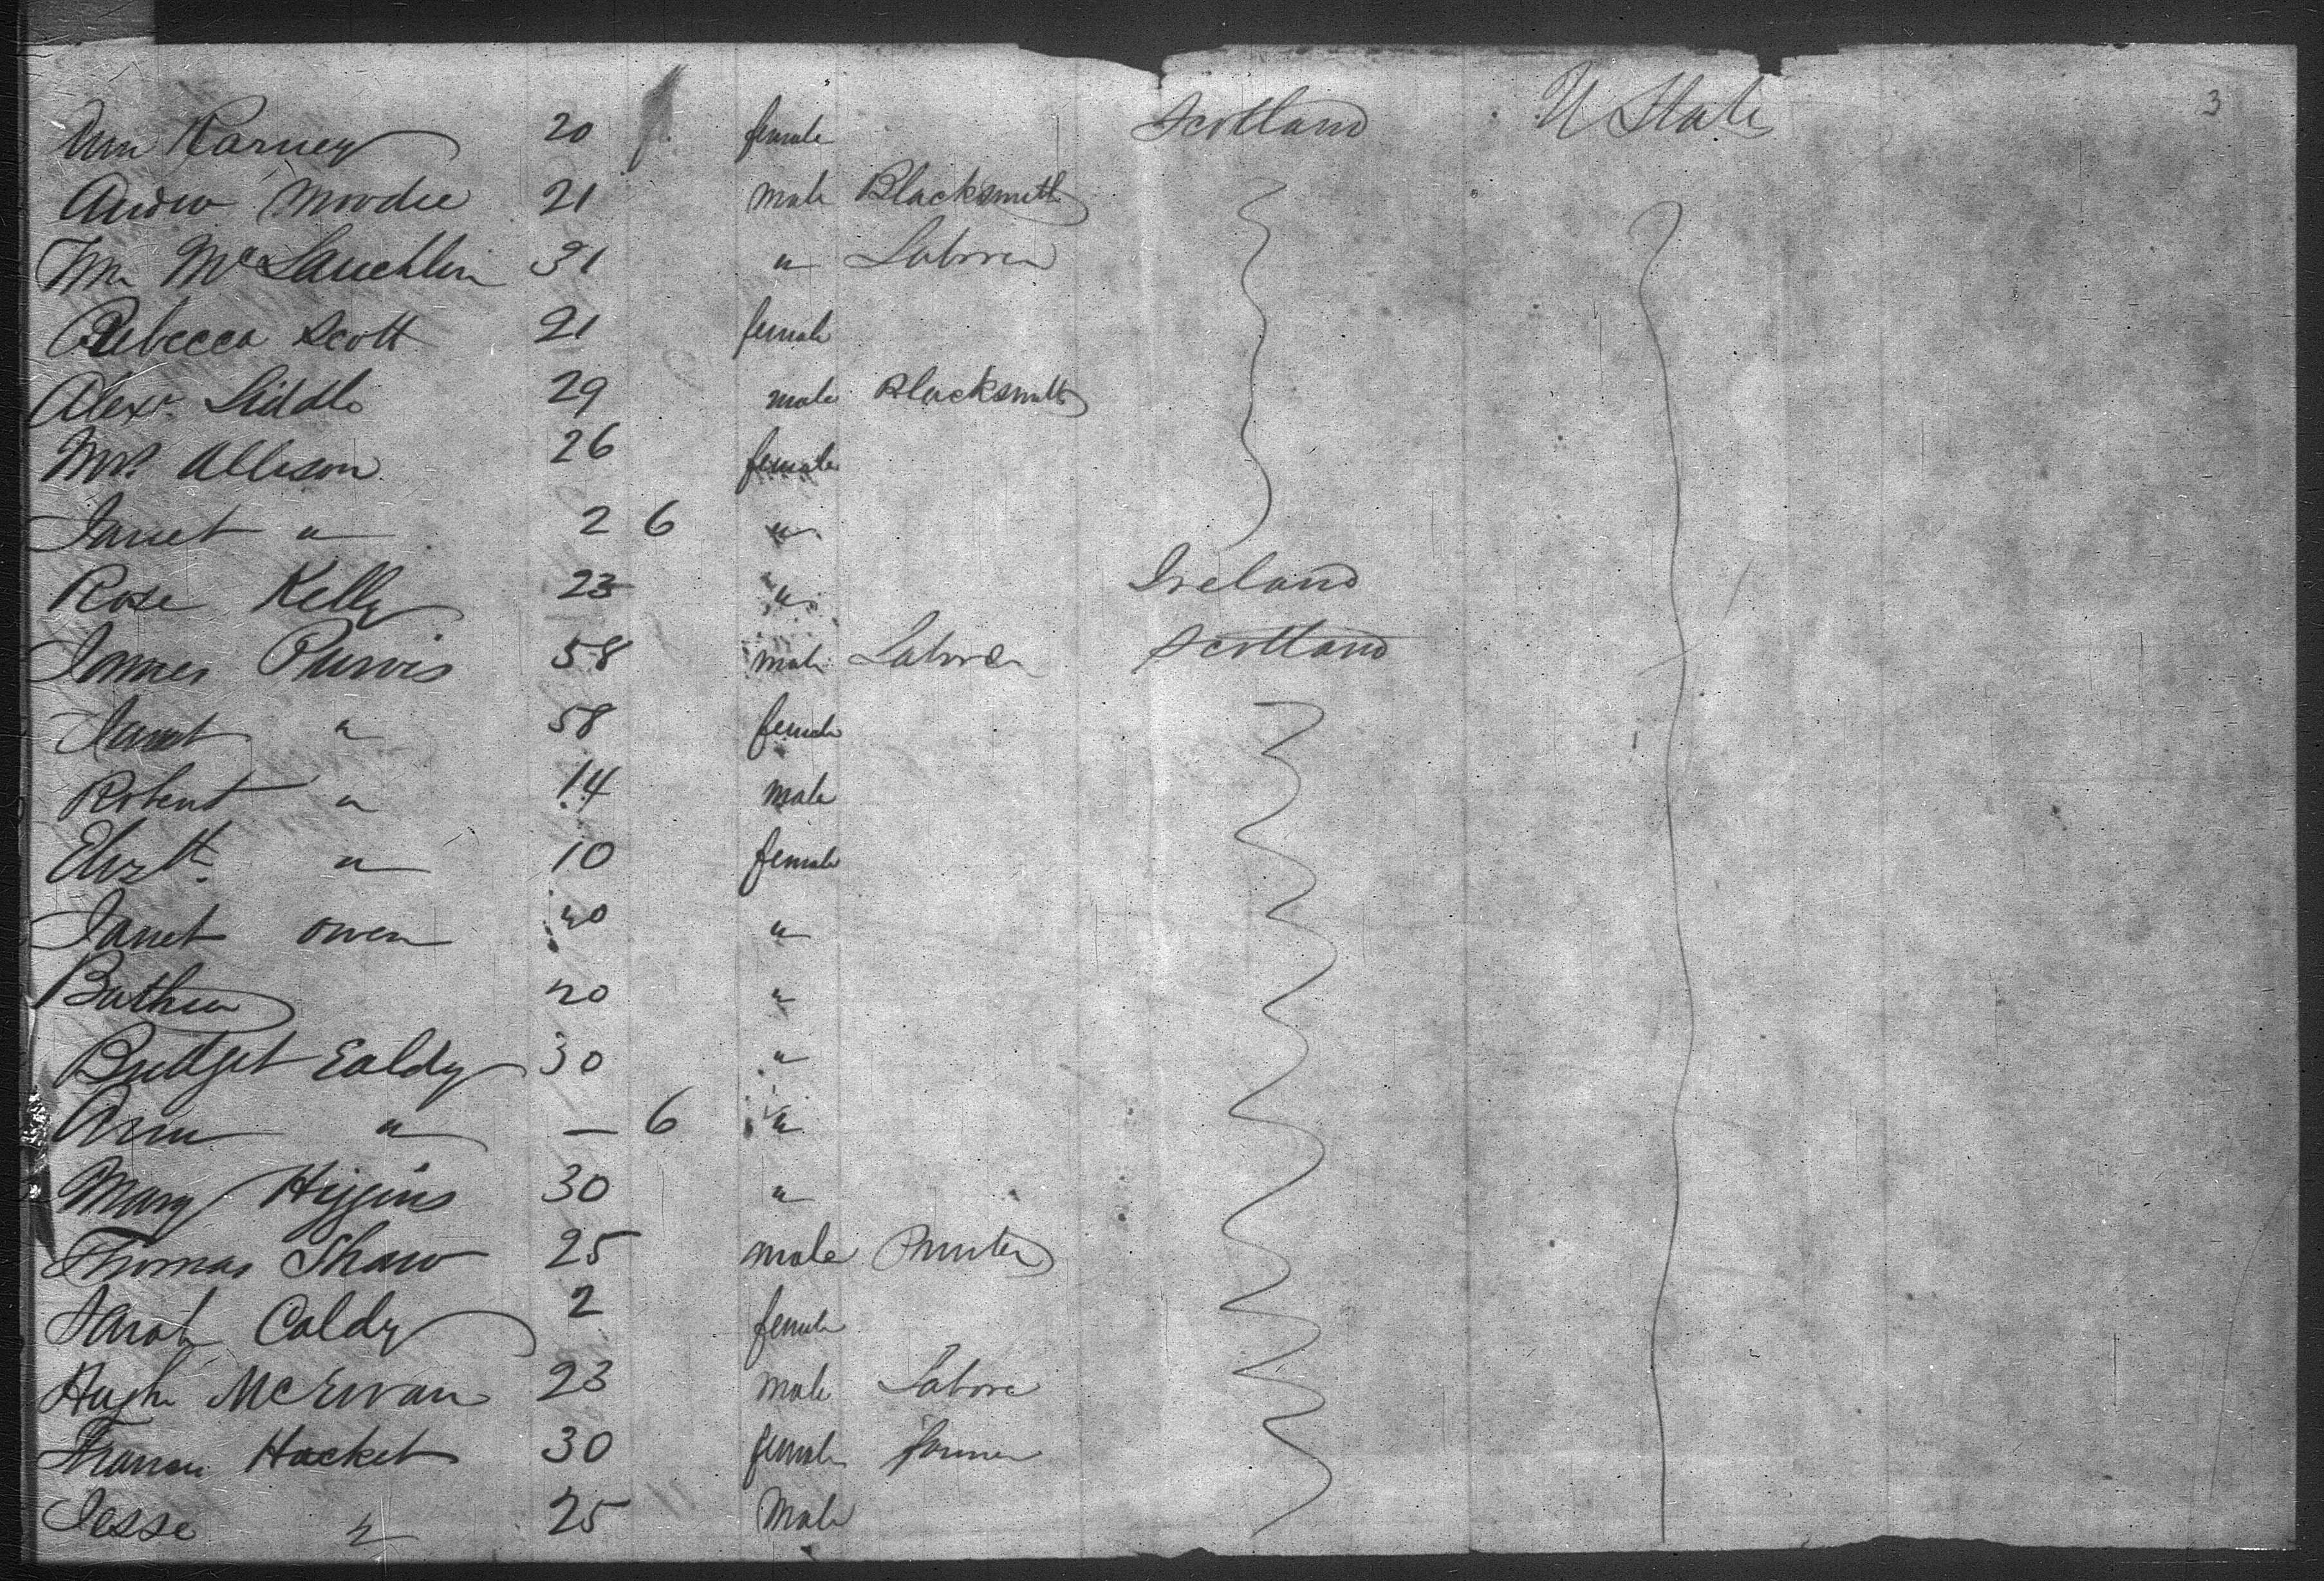 3
Ann Karney 20 female Scotland U State
Andw Moodie 21 male Blacksmith
Wm McLauchlin 31 " Laborer
Rebecca Scott 21 female
Alexr. Liddle 29 male Blacksmith
Mrs Allison 26 female
Janet " 2 6 "
Rose Kelly 23 " Ireland
James Purvis 58 male Laborer Scotland
Janet " 58 female
Robert " 14 male
Elizth. " 10 female
Janet Owen 20 "
20 "
Bridget Ealdy 30 "
Ann " — 6 "
Mary Higgins 30 "
Thomas Shaw 25 male Printer
Sarah Caldy 2 female
Hugh McEwan 23 male Labore
Hacket 30 female farmer
Jesse " 25 Male